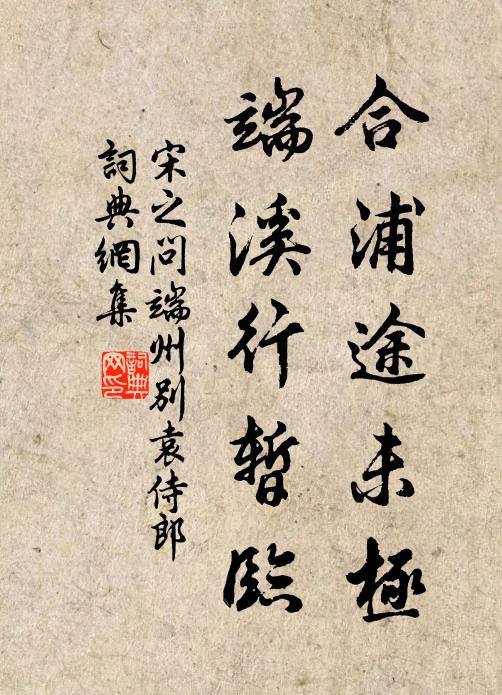 合浦途未極
端溪行暫臨
宋之問端州別袁侍郎
詞典網集
詞典
网印